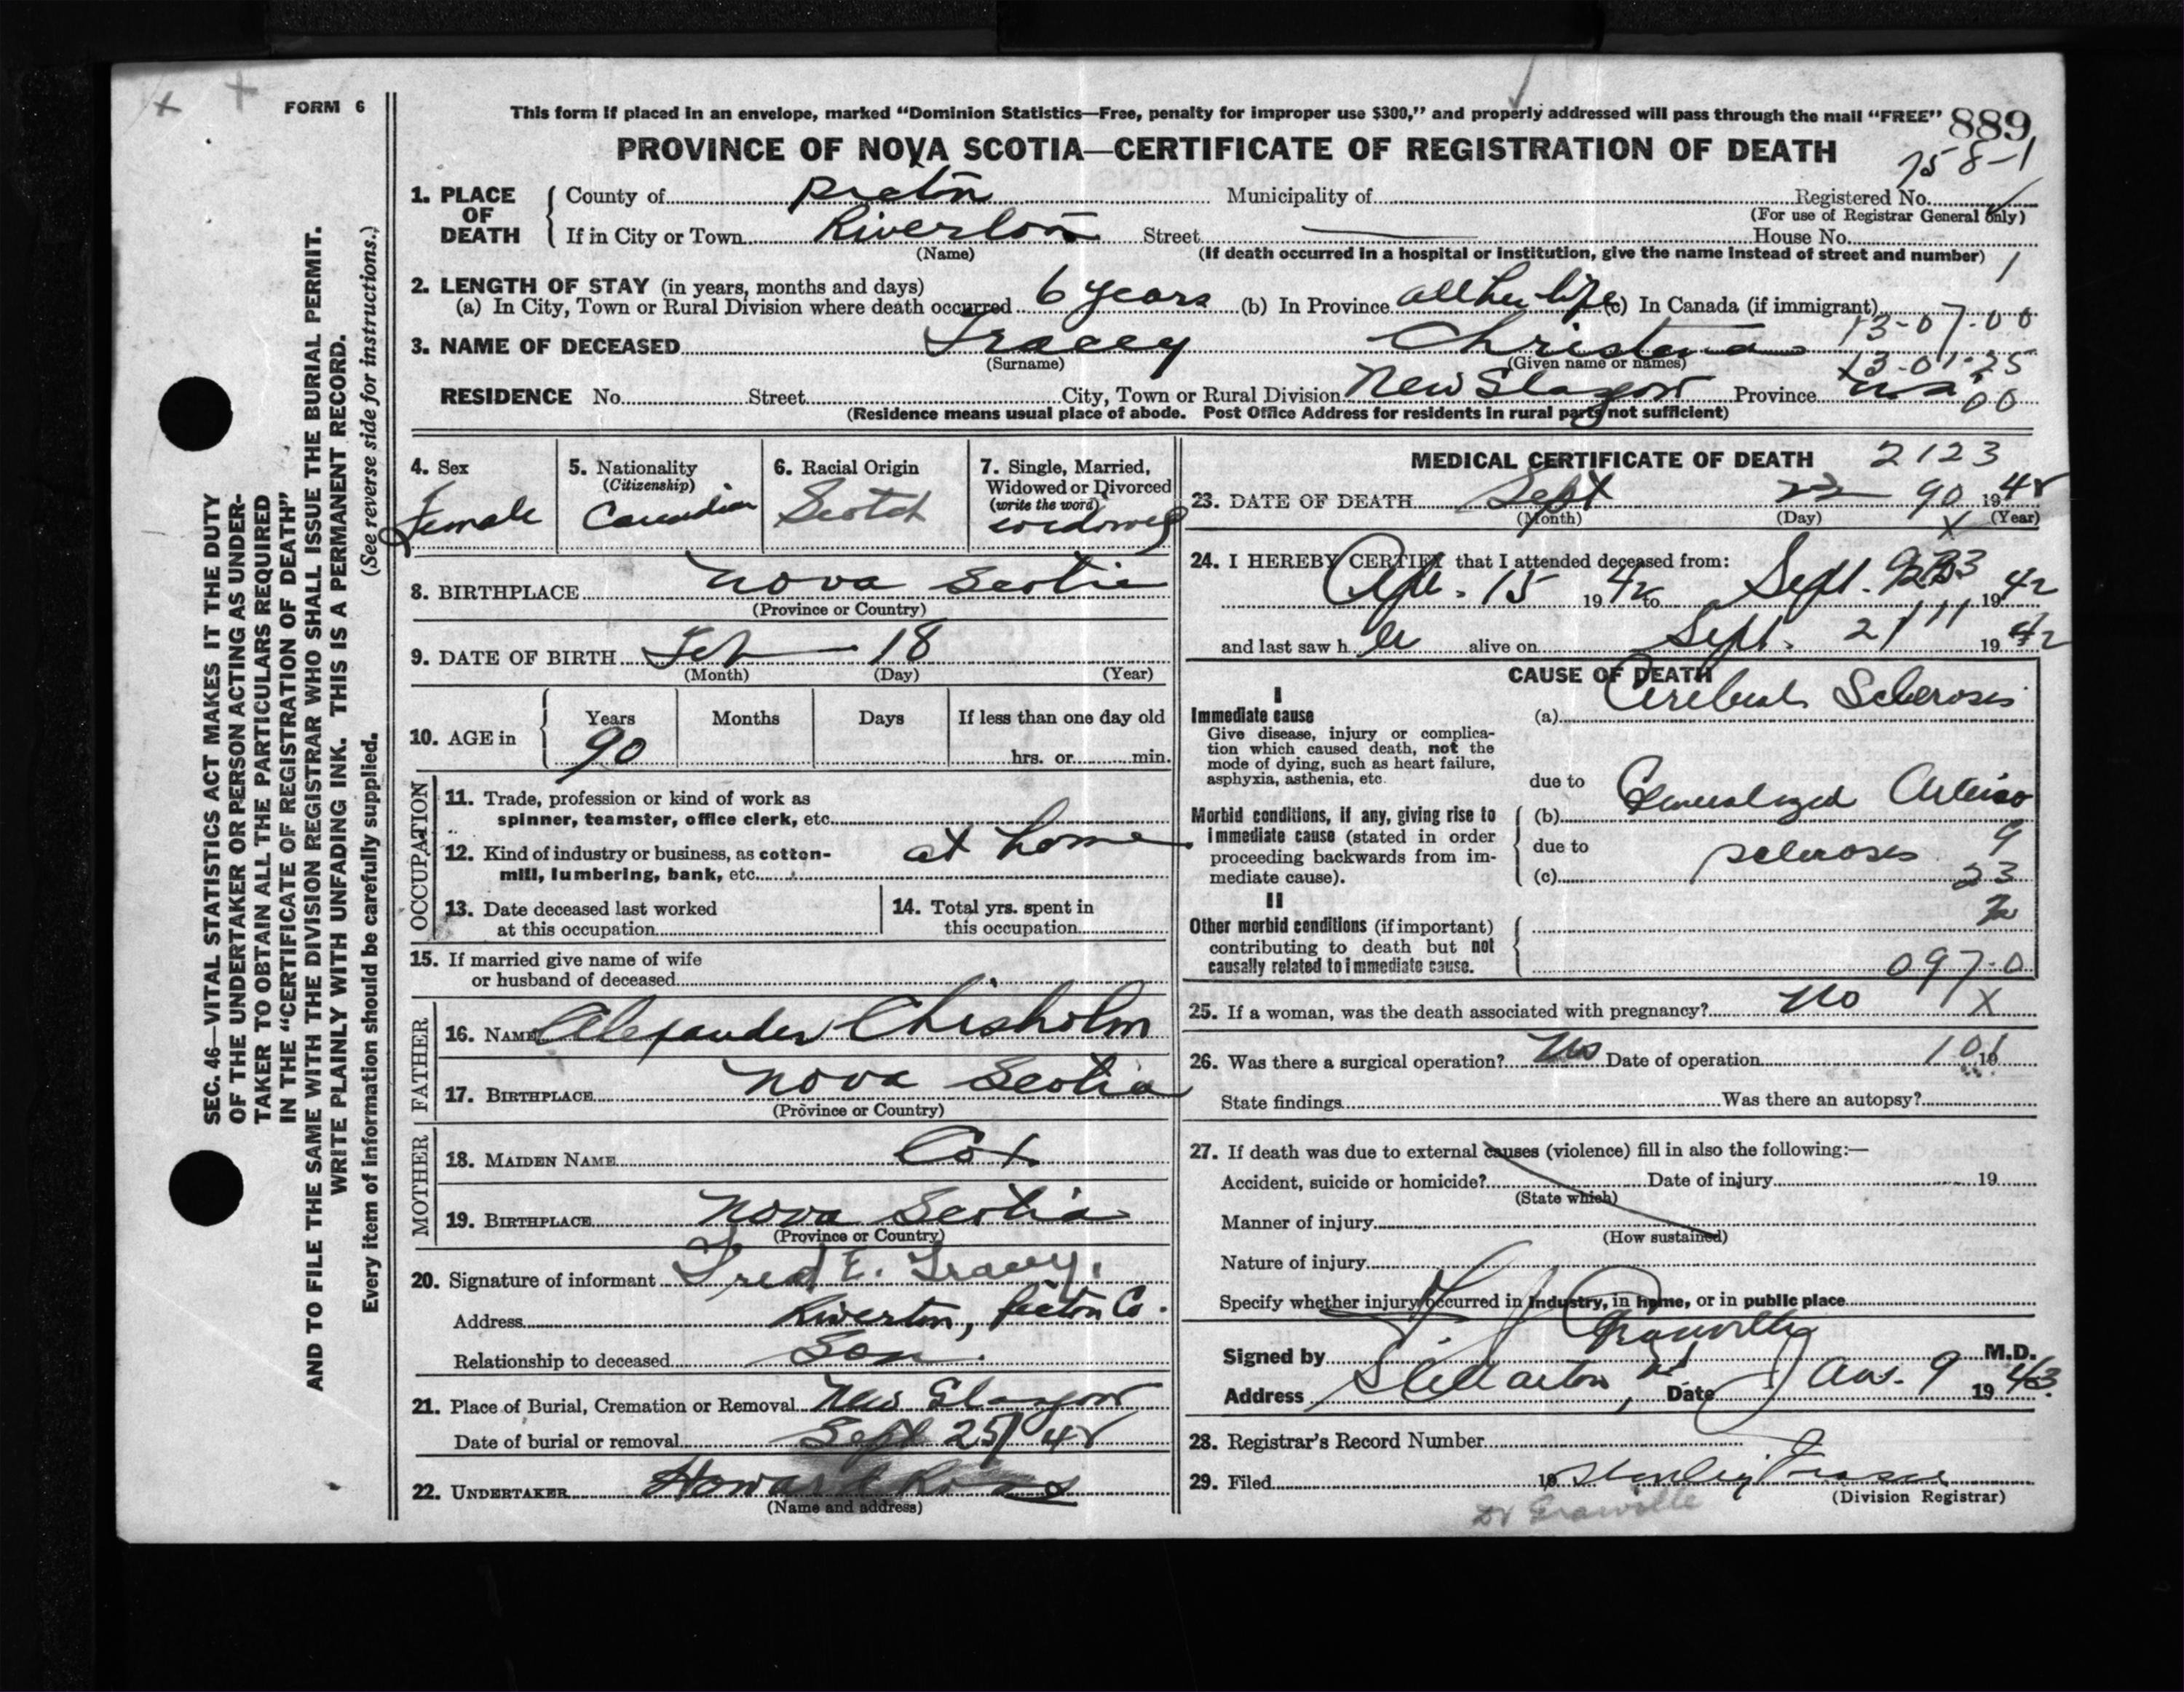 FORM 6
This form if placed in an envelope, marked "Dominion Statistics—Free, penalty for improper use $300," and properly addressed will pass through the mail "FREE"
889
PROVINCE OF NOVA SCOTIA—CERTIFICATE OF REGISTRATION OF DEATH
75 8-1
1. PLACE OF DEATH
County of Pictou Municipality of Registered No.
(For use of Registrar General only)
If in City or Town Riverton Street House No.
(Name) (If death occurred in a hospital or institution, give the name instead of street and number)
2. LENGTH OF STAY (in years, months and days)
(a) In City, Town or Rural Division where death occurred 6 years (b) In Province all her life (c) In Canada (if immigrant)
13-07-00
3. NAME OF DECEASED Tracey Christena
(Surname) (Given name or names)
13-01-25
RESIDENCE No. Street City, Town or Rural Division New Glasgow Province N S
00
(Residence means usual place of abode. Post Office Address for residents in rural parts not sufficient)
4. Sex
Female
5. Nationality
(Citizenship)
Canadian
6. Racial Origin
Scotch
7. Single, Married, Widowed or Divorced
(write the word)
widowed
8. BIRTHPLACE Nova Scotia
(Province or Country)
9. DATE OF BIRTH Feb 18
(Month) (Day) (Year)
10. AGE in
Years Months Days If less than one day old
90 hrs. or min.
OCCUPATION
11. Trade, profession or kind of work as
spinner, teamster, office clerk, etc.
12. Kind of industry or business, as cotton-
mill, lumbering, bank, etc.
at home
13. Date deceased last worked
at this occupation
14. Total yrs. spent in
this occupation
15. If married give name of wife
or husband of deceased
FATHER
16. NAME Alexander Chisholm
17. BIRTHPLACE Nova Scotia
(Province or Country)
MOTHER
18. MAIDEN NAME Cox
19. BIRTHPLACE Nova Scotia
(Province or Country)
20. Signature of informant Fred E. Tracey.
Address Riverton, Pictou Co.
Relationship to deceased Son.
21. Place of Burial, Cremation or Removal New Glasgow
Date of burial or removal Sept 25/42
22. UNDERTAKER Howard
(Name and address)
MEDICAL CERTIFICATE OF DEATH 2123
23. DATE OF DEATH Sept 22 90 1942
(Month) (Day) (Year)
24. I HEREBY CERTIFY that I attended deceased from:
Apr. 15 1942 to Sept. 1942
and last saw h er alive on Sept. 21 1942
CAUSE OF DEATH
I
Immediate cause
Give disease, injury or complica-
tion which caused death, not the
mode of dying, such as heart failure,
asphyxia, asthenia, etc.
(a) Cerebral Sclerosis
due to
Morbid conditions, if any, giving rise to
immediate cause (stated in order
proceeding backwards from im-
mediate cause).
(b) Generalized Arterio
due to sclerosis 9
(c) 23
II
Other morbid conditions (if important)
contributing to death but not
causally related to immediate cause.
097-0
25. If a woman, was the death associated with pregnancy? No X
26. Was there a surgical operation? No Date of operation 101 19
State findings Was there an autopsy?
27. If death was due to external causes (violence) fill in also the following:—
Accident, suicide or homicide? Date of injury 19
(State which)
Manner of injury
(How sustained)
Nature of injury
Specify whether injury occurred in industry, in home, or in public place
Signed by Granville M.D.
Address Stellarton, Date Jan. 9 1943
28. Registrar's Record Number
29. Filed 19 Stanley Fraser
(Division Registrar)
Dr Granville
SEC. 46—VITAL STATISTICS ACT MAKES IT THE DUTY
OF THE UNDERTAKER OR PERSON ACTING AS UNDER-
TAKER TO OBTAIN ALL THE PARTICULARS REQUIRED
IN THE "CERTIFICATE OF REGISTRATION OF DEATH"
AND TO FILE THE SAME WITH THE DIVISION REGISTRAR WHO SHALL ISSUE THE BURIAL PERMIT.
WRITE PLAINLY WITH UNFADING INK. THIS IS A PERMANENT RECORD.
Every item of information should be carefully supplied. (See reverse side for instructions.)